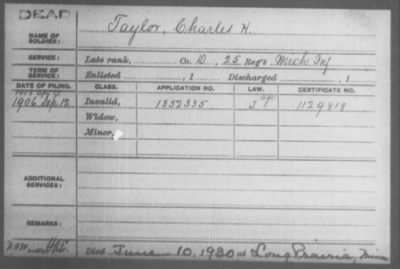 DEAD
NAME OF SOLDIER: Taylor, Charles H.
SERVICE: Late rank, Co. D, 25 Reg't Mich Inf
TERM OF SERVICE: Enlisted , 1 Discharged , 1
DATE OF FILING. CLASS. APPLICATION NO. LAW. CERTIFICATE NO.
1906 Sep. 12 Invalid, 1352335 J 1129818
Widow,
Minor,
ADDITIONAL SERVICES:
REMARKS:
Died June 10, 1930 at Long Prairie, Minn